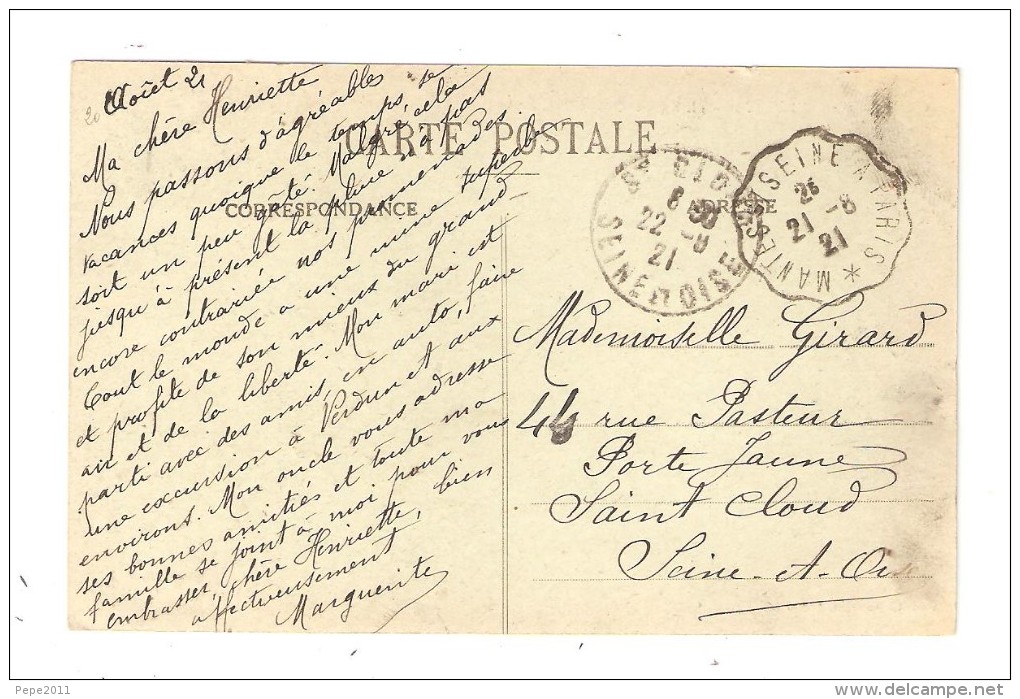 20 Août 21
Ma chère Henriette
Nous passons d'agréables
vacances quoique le temps se
soit un peu gâté. Malgré cela
jusqu'à présent la pluie n'a pas
encore contrariée nos promenades.
Tout le monde a une mine superbe
et profite de son mieux du grand
air et de la liberté. Mon mari est
parti avec des amis, en auto, faire
une excursion à Verdun et aux
environs. Mon oncle vous adresse
ses bonnes amitiés et toute ma
famille se joint à moi pour vous
embrasser, chère Henriette, bien
affectueusement
Marguerite
CARTE POSTALE
CORRESPONDANCE
ADRESSE
ST CLOUD
22 -8
21
SEINE ET OISE
MANTES SUR SEINE A PARIS *
21 -8
21
Mademoiselle Girard
44 rue Pasteur
Porte Jaune
Saint Cloud
Seine-et-Oise
Pepe2011
www.delcampe.net